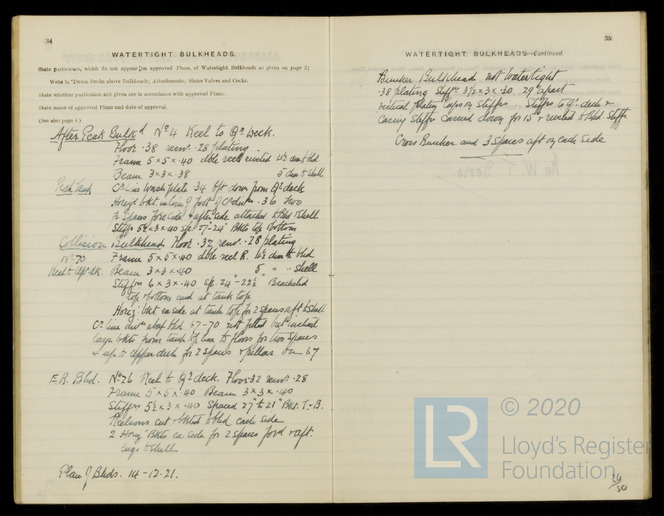 34
WATERTIGHT BULKHEADS.
State particulars, which do not appear on approved Plans, of Watertight Bulkheads as given on page 3;
Webs in 'Tween Decks above Bulkheads; Attachments; Sluice Valves and Cocks.
State whether particulars not given are in accordance with approved Plans.
State name of approved Plans and date of approval.
(See also page 4.)
After Peak Bulkd No 4 Keel to Qr Deck.
Floor .38 remr .28 plating
Frame 5 x 5 x .40 dble reel
Beam 3 x 3 x .38 5 dia to shell
Peak Tank Cr Line Washplate .34 8ft down from Qr deck
.36 two
attached to Bhd & Shell
Stiffs 5½ x 3 x .40 sp 27"-24" Bkts top & bottom
Collision Bulkhead Floor .32 remr .28 plating
No 70 Frame 5 x 5 x .40 dble reel R. 4½ diam to bhd
Keel to Upr dk. Beam 3 x 3 x .40 5 " " shell
Stiffrs 6 x 3 x .40 sp 24"-22½" Bracketed
top & bottom and at tank top
Horiz bkt ea side at tank top for 2 spaces aft & shell
67-70 not fitted but instead
large bkts from tank top line to floors for two spaces
& up to upper deck for 2 spaces & pillars on 67
E.R. Bhd. No 26 Keel to Qr deck. Floor .32 remr .28
Frame 5 x 5 x .40 Beam 3 x 3 x .40
Stiffrs 5½ x 3 x .40 Spaced 27" to 21" Bkt. T. & B.
Keelsons cut & bktd to bhd each side
2 Horiz Bkts ea side for 2 spaces ford & aft.
lugs to shell
Plan of Bhds. 14-12-21.
35
WATERTIGHT BULKHEADS—Continued.
Bunker Bulkhead not Watertight
.38 plating Stiffrs 3½ x 3 x .30 29" apart
vertical plating laps on stiffrs Stiffrs to Qr deck &
Casing stiffrs carried down for 15" & riveted to Bhd Stiffs
Cross Bunker and 3 spaces aft on each side
© 2020
LR
Lloyd's Register
Foundation